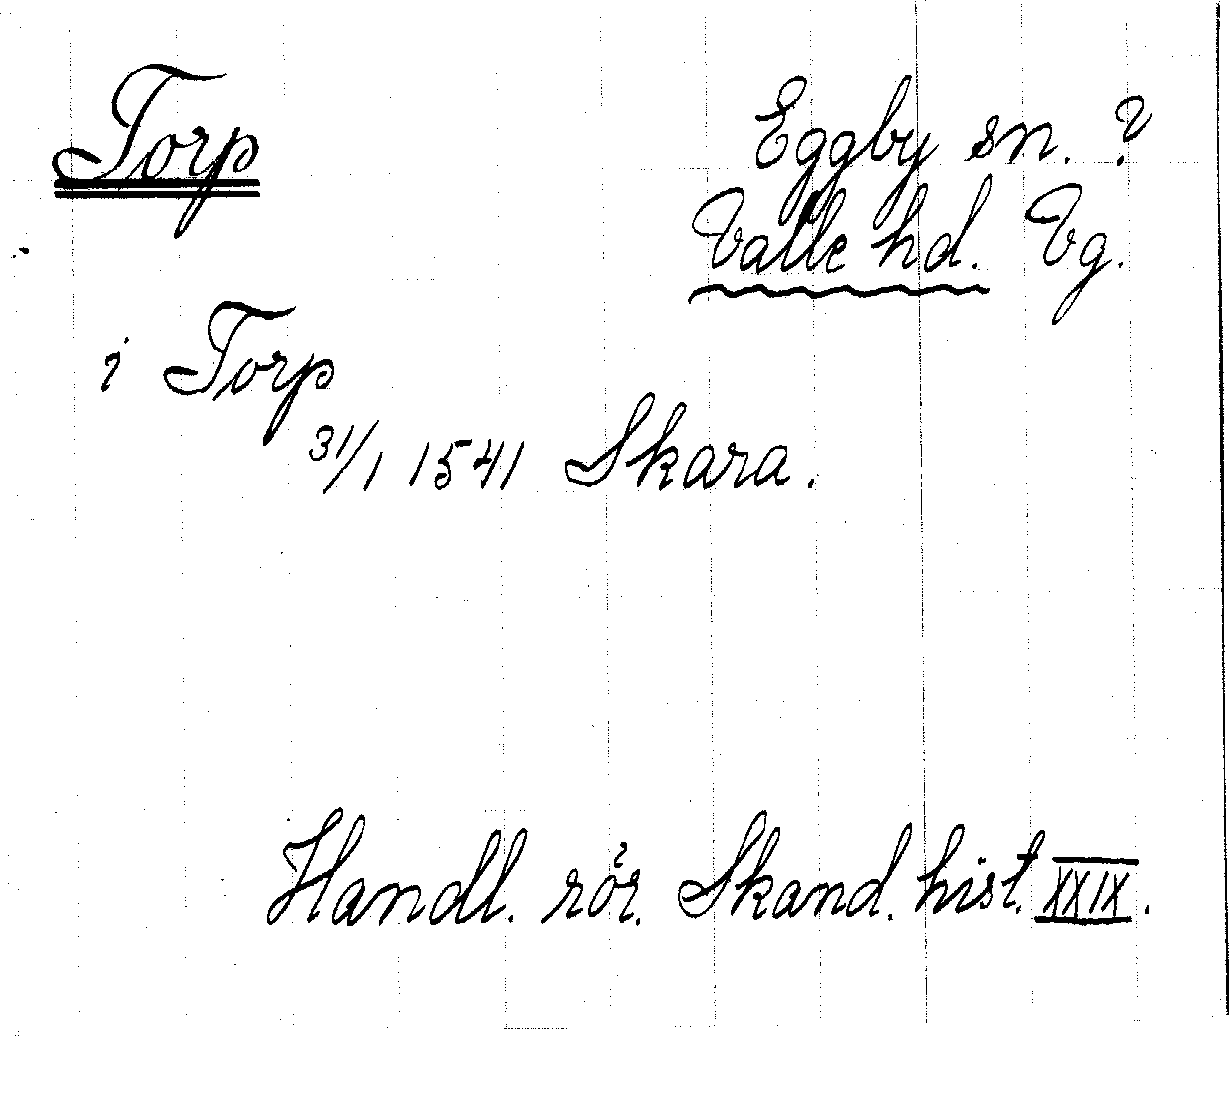 Torp
Eggby sn. ?
Valle hd. Vg.
i Torp
31/1 1541 Skara.
Handl. rör. Skand. hist. XXIX.